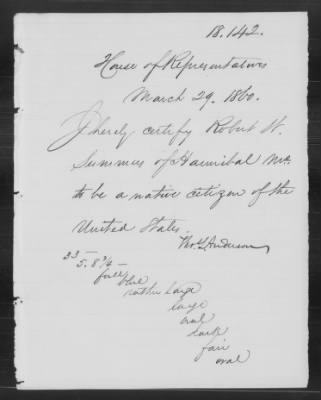 18.142.
House of Representatives
March 29. 1860.
I hereby certify Robert H.
Summers of Hannibal Mo.
to be a native citizen of the
United States.
Tho. L. Anderson
33 -
5. 8 3/4 -
full
blue
rather large
large
oval
dark
fair
oval